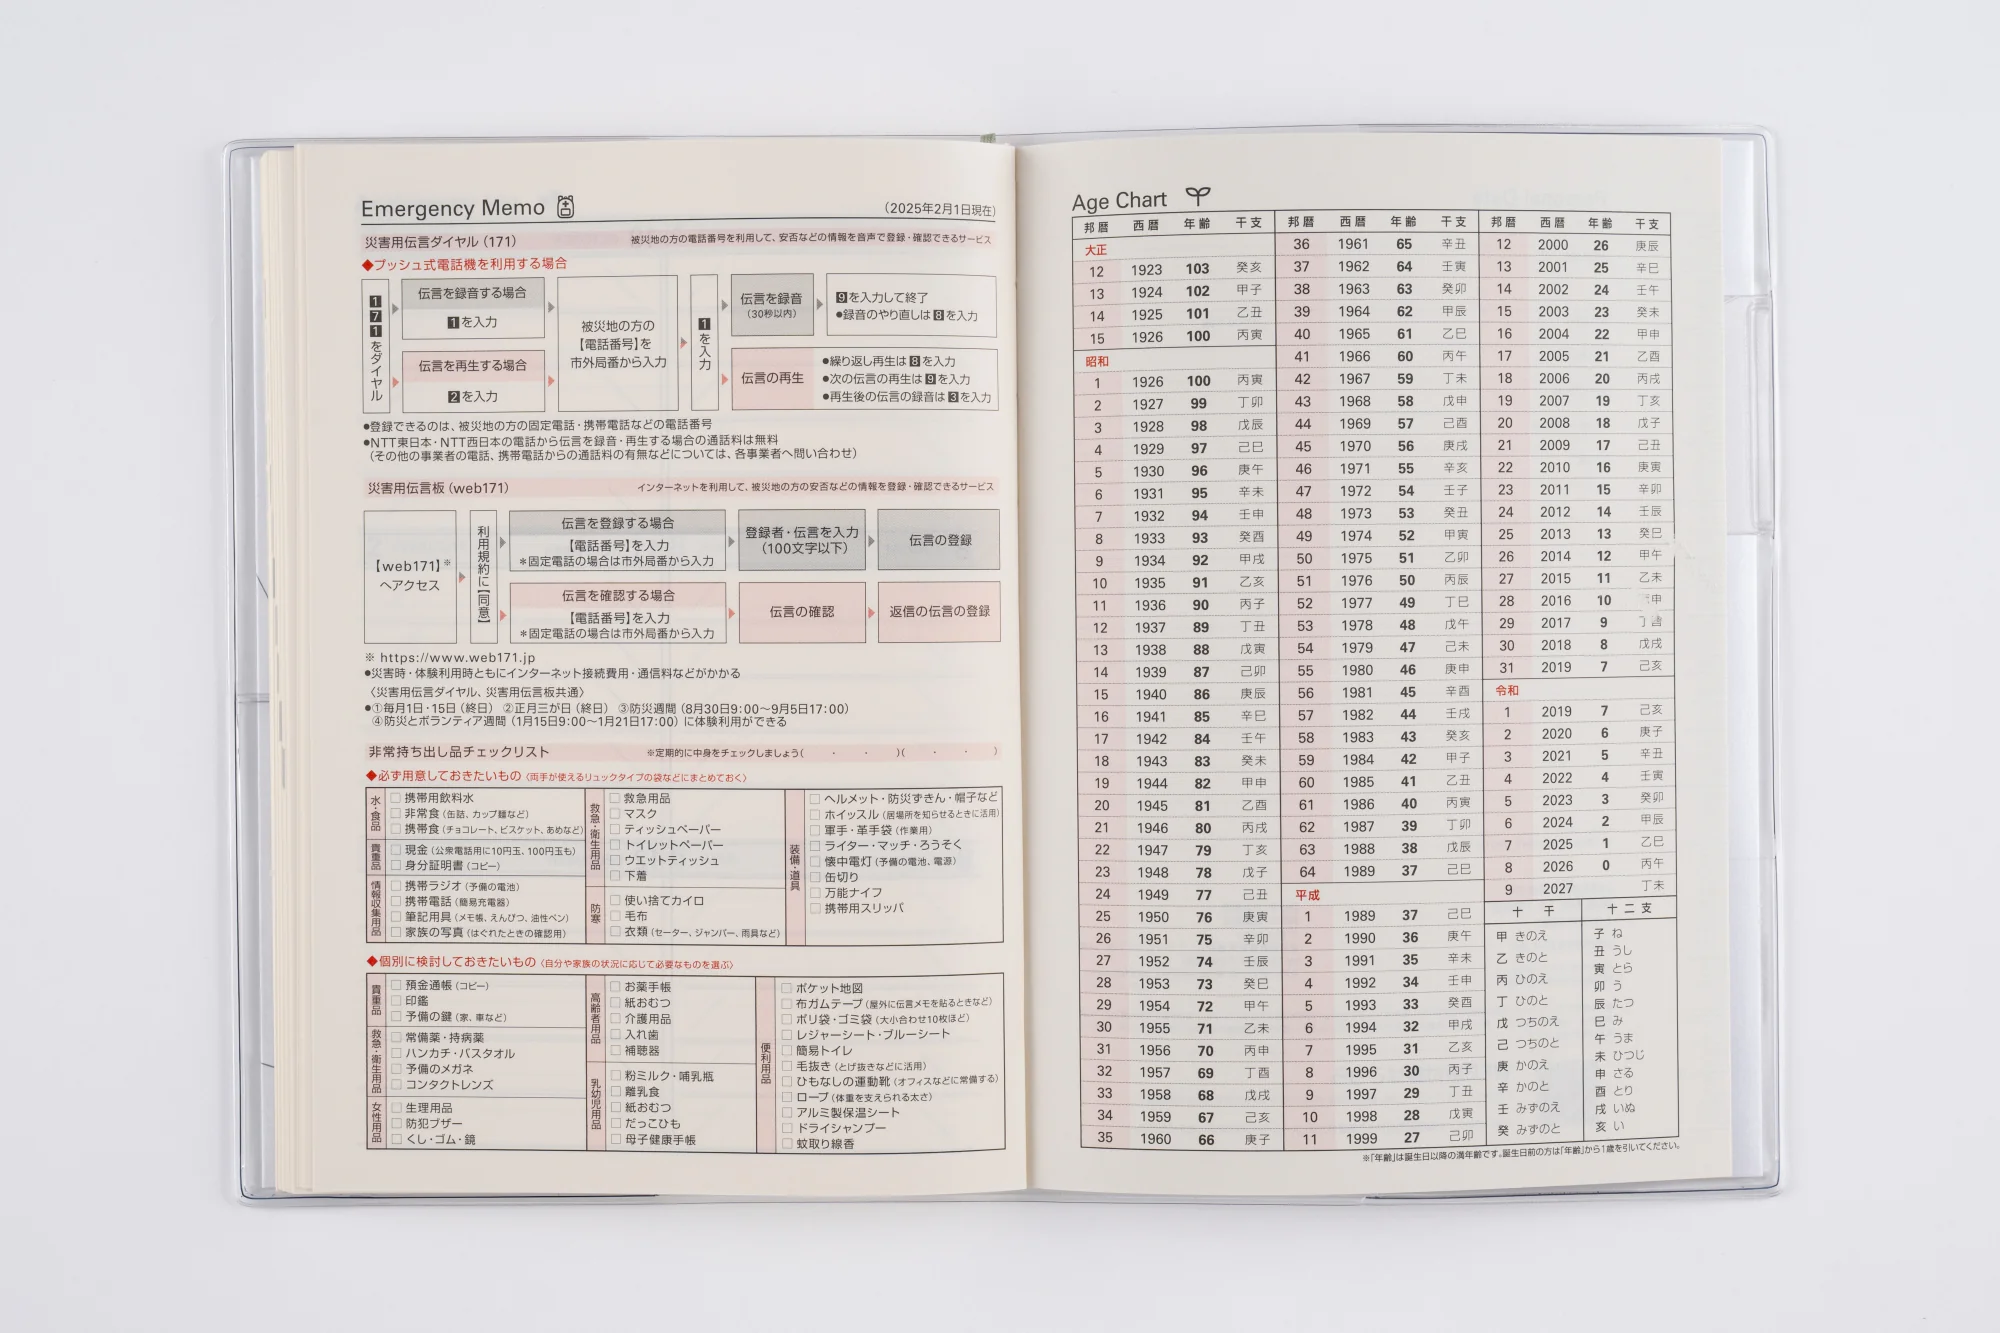 Emergency Memo
(2025年2月1日現在)
災害用伝言ダイヤル(171) 被災地の方の電話番号を利用して、安否などの情報を音声で登録・確認できるサービス
◆プッシュ式電話機を利用する場合
171をダイヤル
伝言を録音する場合
1を入力
伝言を再生する場合
2を入力
被災地の方の
【電話番号】を
市外局番から入力
1を入力
伝言を録音
(30秒以内)
9を入力して終了
●録音のやり直しは8を入力
伝言の再生
●繰り返し再生は8を入力
●次の伝言の再生は9を入力
●再生後の伝言の録音は3を入力
●登録できるのは、被災地の方の固定電話・携帯電話などの電話番号
●NTT東日本・NTT西日本の電話から伝言を録音・再生する場合の通話料は無料
(その他の事業者の電話、携帯電話からの通話料の有無などについては、各事業者へ問い合わせ)
災害用伝言板(web171) インターネットを利用して、被災地の方の安否などの情報を登録・確認できるサービス
【web171】※
へアクセス
利用規約に【同意】
伝言を登録する場合
【電話番号】を入力
*固定電話の場合は市外局番から入力
登録者・伝言を入力
(100文字以下)
伝言の登録
伝言を確認する場合
【電話番号】を入力
*固定電話の場合は市外局番から入力
伝言の確認
返信の伝言の登録
※ https://www.web171.jp
●災害時・体験利用時ともにインターネット接続費用・通信料などがかかる
〈災害用伝言ダイヤル、災害用伝言板共通〉
●①毎月1日・15日(終日) ②正月三が日(終日) ③防災週間(8月30日9:00〜9月5日17:00)
④防災とボランティア週間(1月15日9:00〜1月21日17:00)に体験利用ができる
非常持ち出し品チェックリスト ※定期的に中身をチェックしましょう( ・ ・ )( ・ ・ )
◆必ず用意しておきたいもの〈両手が使えるリュックタイプの袋などにまとめておく〉
水・食品
□携帯用飲料水
□非常食(缶詰、カップ麺など)
□携帯食(チョコレート、ビスケット、あめなど)
貴重品
□現金(公衆電話用に10円玉、100円玉も)
□身分証明書(コピー)
情報収集用品
□携帯ラジオ(予備の電池)
□携帯電話(簡易充電器)
□筆記用具(メモ帳、えんぴつ、油性ペン)
□家族の写真(はぐれたときの確認用)
救急・衛生用品
□救急用品
□マスク
□ティッシュペーパー
□トイレットペーパー
□ウエットティッシュ
□下着
防寒
□使い捨てカイロ
□毛布
□衣類(セーター、ジャンパー、雨具など)
装備・道具
□ヘルメット・防災ずきん・帽子など
□ホイッスル(居場所を知らせるときに活用)
□軍手・革手袋(作業用)
□ライター・マッチ・ろうそく
□懐中電灯(予備の電池、電源)
□缶切り
□万能ナイフ
□携帯用スリッパ
◆個別に検討しておきたいもの〈自分や家族の状況に応じて必要なものを選ぶ〉
貴重品
□預金通帳(コピー)
□印鑑
□予備の鍵(家、車など)
救急・衛生用品
□常備薬・持病薬
□ハンカチ・バスタオル
□予備のメガネ
□コンタクトレンズ
女性用品
□生理用品
□防犯ブザー
□くし・ゴム・鏡
高齢者用品
□お薬手帳
□紙おむつ
□介護用品
□入れ歯
□補聴器
乳幼児用品
□粉ミルク・哺乳瓶
□離乳食
□紙おむつ
□だっこひも
□母子健康手帳
便利用品
□ポケット地図
□布ガムテープ(屋外に伝言メモを貼るときなど)
□ポリ袋・ゴミ袋(大小合わせ10枚ほど)
□レジャーシート・ブルーシート
□簡易トイレ
□毛抜き(とげ抜きなどに活用)
□ひもなしの運動靴(オフィスなどに常備する)
□ロープ(体重を支えられる太さ)
□アルミ製保温シート
□ドライシャンプー
□蚊取り線香
Age Chart
邦暦 西暦 年齢 干支
大正
12 1923 103 癸亥
13 1924 102 甲子
14 1925 101 乙丑
15 1926 100 丙寅
昭和
1 1926 100 丙寅
2 1927 99 丁卯
3 1928 98 戊辰
4 1929 97 己巳
5 1930 96 庚午
6 1931 95 辛未
7 1932 94 壬申
8 1933 93 癸酉
9 1934 92 甲戌
10 1935 91 乙亥
11 1936 90 丙子
12 1937 89 丁丑
13 1938 88 戊寅
14 1939 87 己卯
15 1940 86 庚辰
16 1941 85 辛巳
17 1942 84 壬午
18 1943 83 癸未
19 1944 82 甲申
20 1945 81 乙酉
21 1946 80 丙戌
22 1947 79 丁亥
23 1948 78 戊子
24 1949 77 己丑
25 1950 76 庚寅
26 1951 75 辛卯
27 1952 74 壬辰
28 1953 73 癸巳
29 1954 72 甲午
30 1955 71 乙未
31 1956 70 丙申
32 1957 69 丁酉
33 1958 68 戊戌
34 1959 67 己亥
35 1960 66 庚子
邦暦 西暦 年齢 干支
36 1961 65 辛丑
37 1962 64 壬寅
38 1963 63 癸卯
39 1964 62 甲辰
40 1965 61 乙巳
41 1966 60 丙午
42 1967 59 丁未
43 1968 58 戊申
44 1969 57 己酉
45 1970 56 庚戌
46 1971 55 辛亥
47 1972 54 壬子
48 1973 53 癸丑
49 1974 52 甲寅
50 1975 51 乙卯
51 1976 50 丙辰
52 1977 49 丁巳
53 1978 48 戊午
54 1979 47 己未
55 1980 46 庚申
56 1981 45 辛酉
57 1982 44 壬戌
58 1983 43 癸亥
59 1984 42 甲子
60 1985 41 乙丑
61 1986 40 丙寅
62 1987 39 丁卯
63 1988 38 戊辰
64 1989 37 己巳
平成
1 1989 37 己巳
2 1990 36 庚午
3 1991 35 辛未
4 1992 34 壬申
5 1993 33 癸酉
6 1994 32 甲戌
7 1995 31 乙亥
8 1996 30 丙子
9 1997 29 丁丑
10 1998 28 戊寅
11 1999 27 己卯
邦暦 西暦 年齢 干支
12 2000 26 庚辰
13 2001 25 辛巳
14 2002 24 壬午
15 2003 23 癸未
16 2004 22 甲申
17 2005 21 乙酉
18 2006 20 丙戌
19 2007 19 丁亥
20 2008 18 戊子
21 2009 17 己丑
22 2010 16 庚寅
23 2011 15 辛卯
24 2012 14 壬辰
25 2013 13 癸巳
26 2014 12 甲午
27 2015 11 乙未
28 2016 10 申
29 2017 9
30 2018 8 戊戌
31 2019 7 己亥
令和
1 2019 7 己亥
2 2020 6 庚子
3 2021 5 辛丑
4 2022 4 壬寅
5 2023 3 癸卯
6 2024 2 甲辰
7 2025 1 乙巳
8 2026 0 丙午
9 2027 丁未
十干
甲 きのえ
乙 きのと
丙 ひのえ
丁 ひのと
戊 つちのえ
己 つちのと
庚 かのえ
辛 かのと
壬 みずのえ
癸 みずのと
十二支
子 ね
丑 うし
寅 とら
卯 う
辰 たつ
巳 み
午 うま
未 ひつじ
申 さる
酉 とり
戌 いぬ
亥 い
※「年齢」は誕生日以降の満年齢です。誕生日前の方は「年齢」から1歳を引いてください。